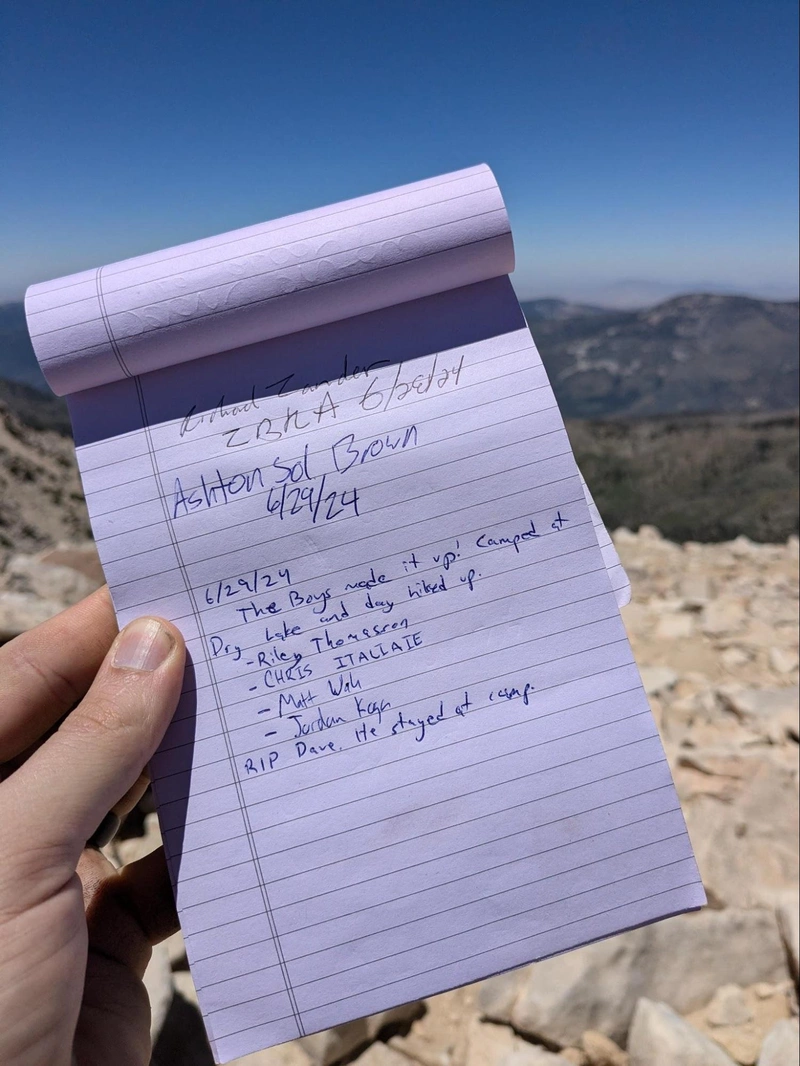 Zander
6/28/24
Ashton Sol Brown
6/29/24
6/29/24
The Boys made it up! Camped at
Dry Lake and day hiked up.
- Riley Thomasson
- CHRIS
- Matt
- Jordan
RIP Dave. He stayed at camp.